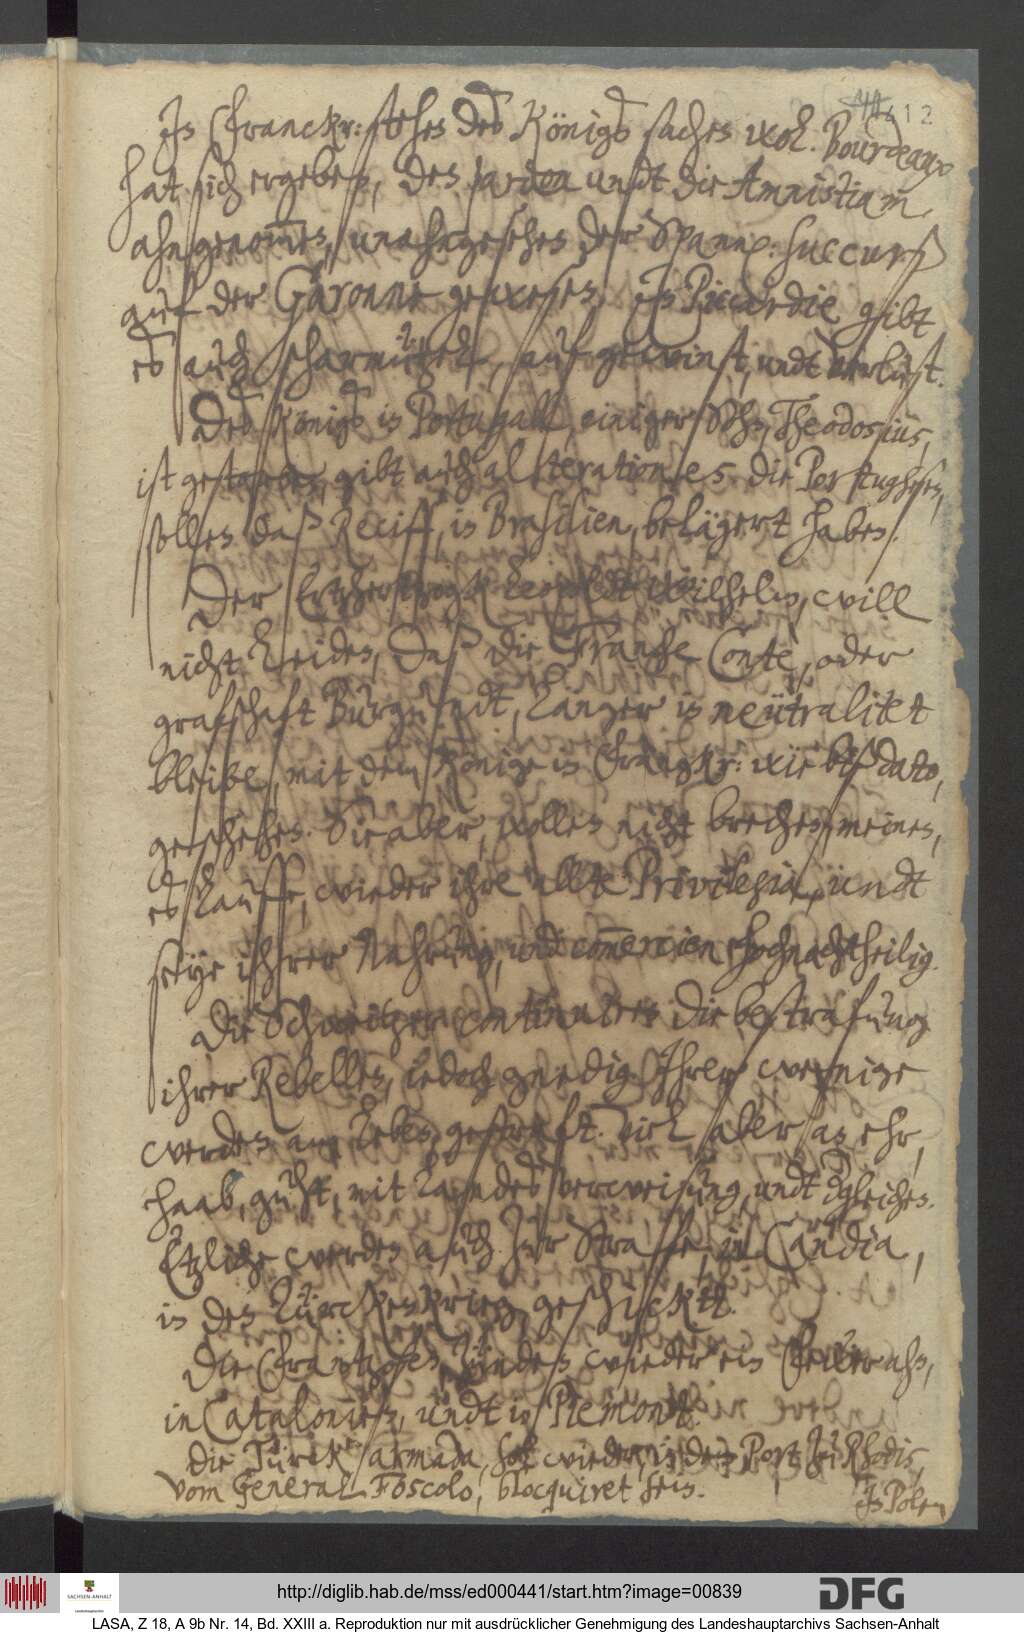 412
In Franckr: stehen des Königs sachen wol. Bourdeaux
hat sich ergeben, den pardon undt die Amnistiam
ahngenom̅en, unahngesehen der Spann: succurß
auf der Garonne gewesen, In Piccardie gibt
es auch scharmützel, auf gewinst, undt verlust.
Des Königs in Portugall, einiger Sohn, Theodosius,
ist gestorben, gibt auch alterationes. die Portughesen,
sollen daß Reciff, in Brasilien, belägert haben.
Der Ertzhertzogk Leopoldt Wilhelm, will
nicht leiden, daß die Franche Conté, oder
grafschaft Burgundt, länger in neütralitet
bleibe, mit dem Könige in Franckr: wie biß dato,
geschehen. Sie aber, wollen nicht brechen, meinen,
es lauffe, wieder ihre allte Privilegia, undt
seye ihrer Nahrung, und com̅ercien hochnachtheilig.
Die Schweitzer continuiren die bestrafung
ihrer Rebellen, iedoch gnedig. Ihrer wenige
werden am leben gestraft. Viel aber an ehr,
haab, guht, mit landes verweisung, undt dergleichen.
Etzliche werden auch zur Straffe in Candia,
in den Türckenkrieg geschickt.
Die Frantzosen zünden wieder ein Feuer ahn,
in Catalonien, undt in Piemont.
Die Türck: armada, soll wieder, in dem Port zu Rhodis,
vom General Foscolo, blocquiret sein.
In Polen
http://diglib.hab.de/mss/ed000441/start.htm?image=00839
SACHSEN-ANHALT
DFG
LASA, Z 18, A 9b Nr. 14, Bd. XXIII a. Reproduktion nur mit ausdrücklicher Genehmigung des Landeshauptarchivs Sachsen-Anhalt